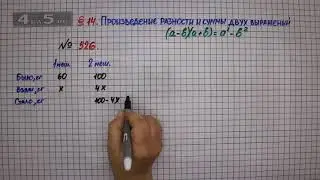 § 14. Произведение разности и суммы двух выражений
(a-b)(a+b)=a²-b²
№ 526.
1 меш. 2 меш.
Было, кг 60 100
Взяли, кг x 4x
Стало, кг 100-4x